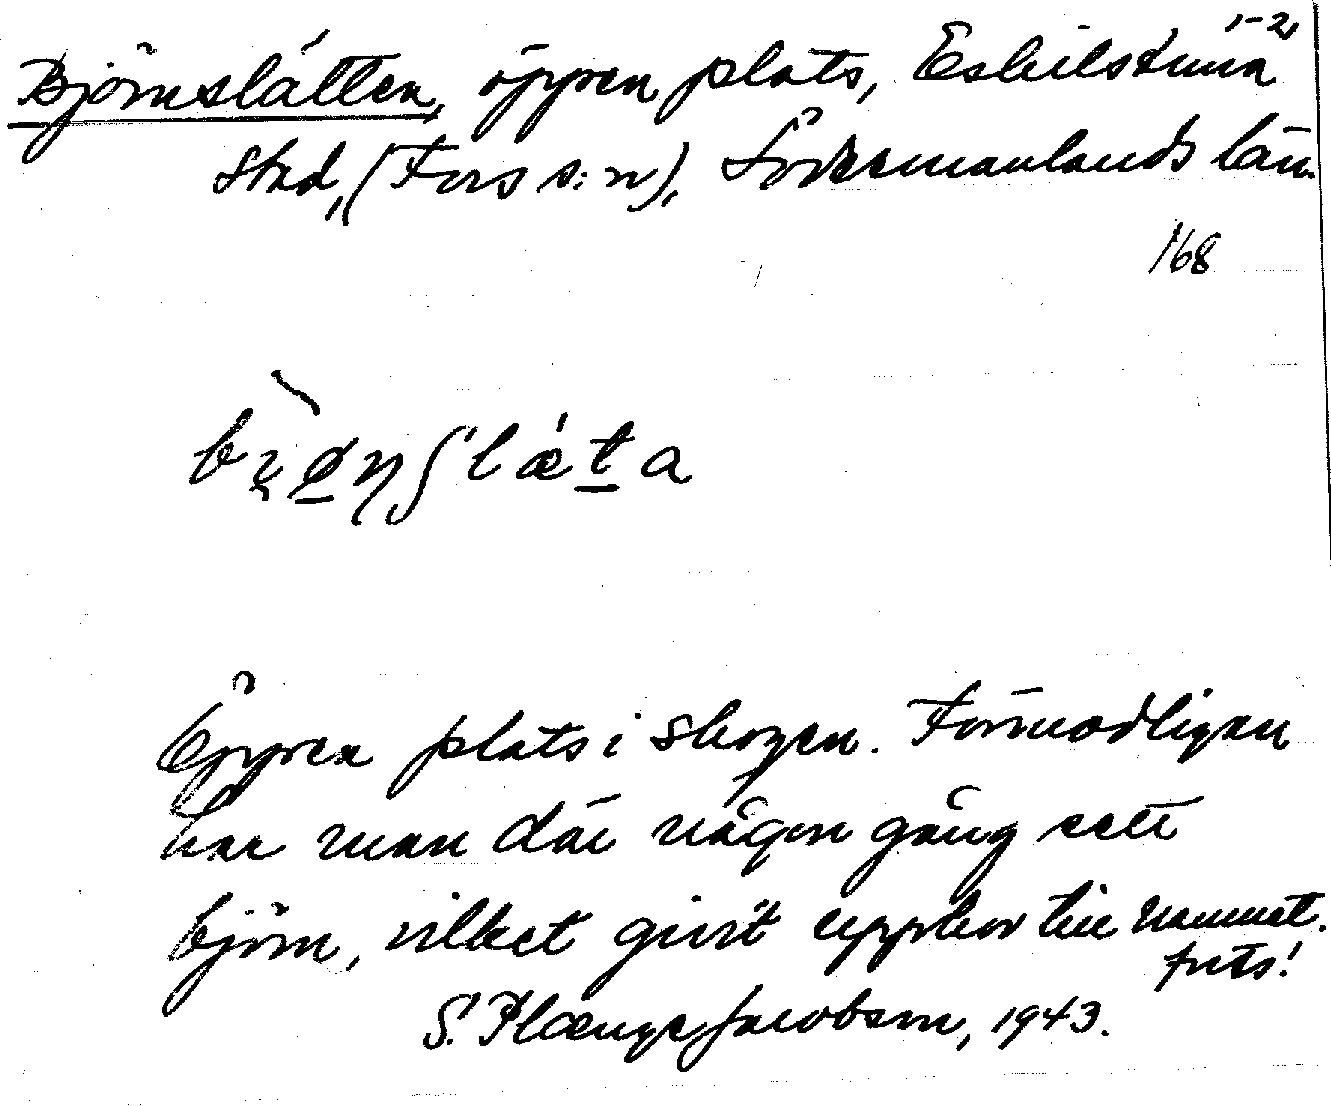 1-2,
Björnslätten, öppen plats, Eskilstuna
stad, (Fors s:n), Södermanlands län.
168
Öppen plats i skogen. Förmodligen
har man där någon gång sett
björn, vilket givit upphov till namnet.
S. Plænge Jacobson, 1943.